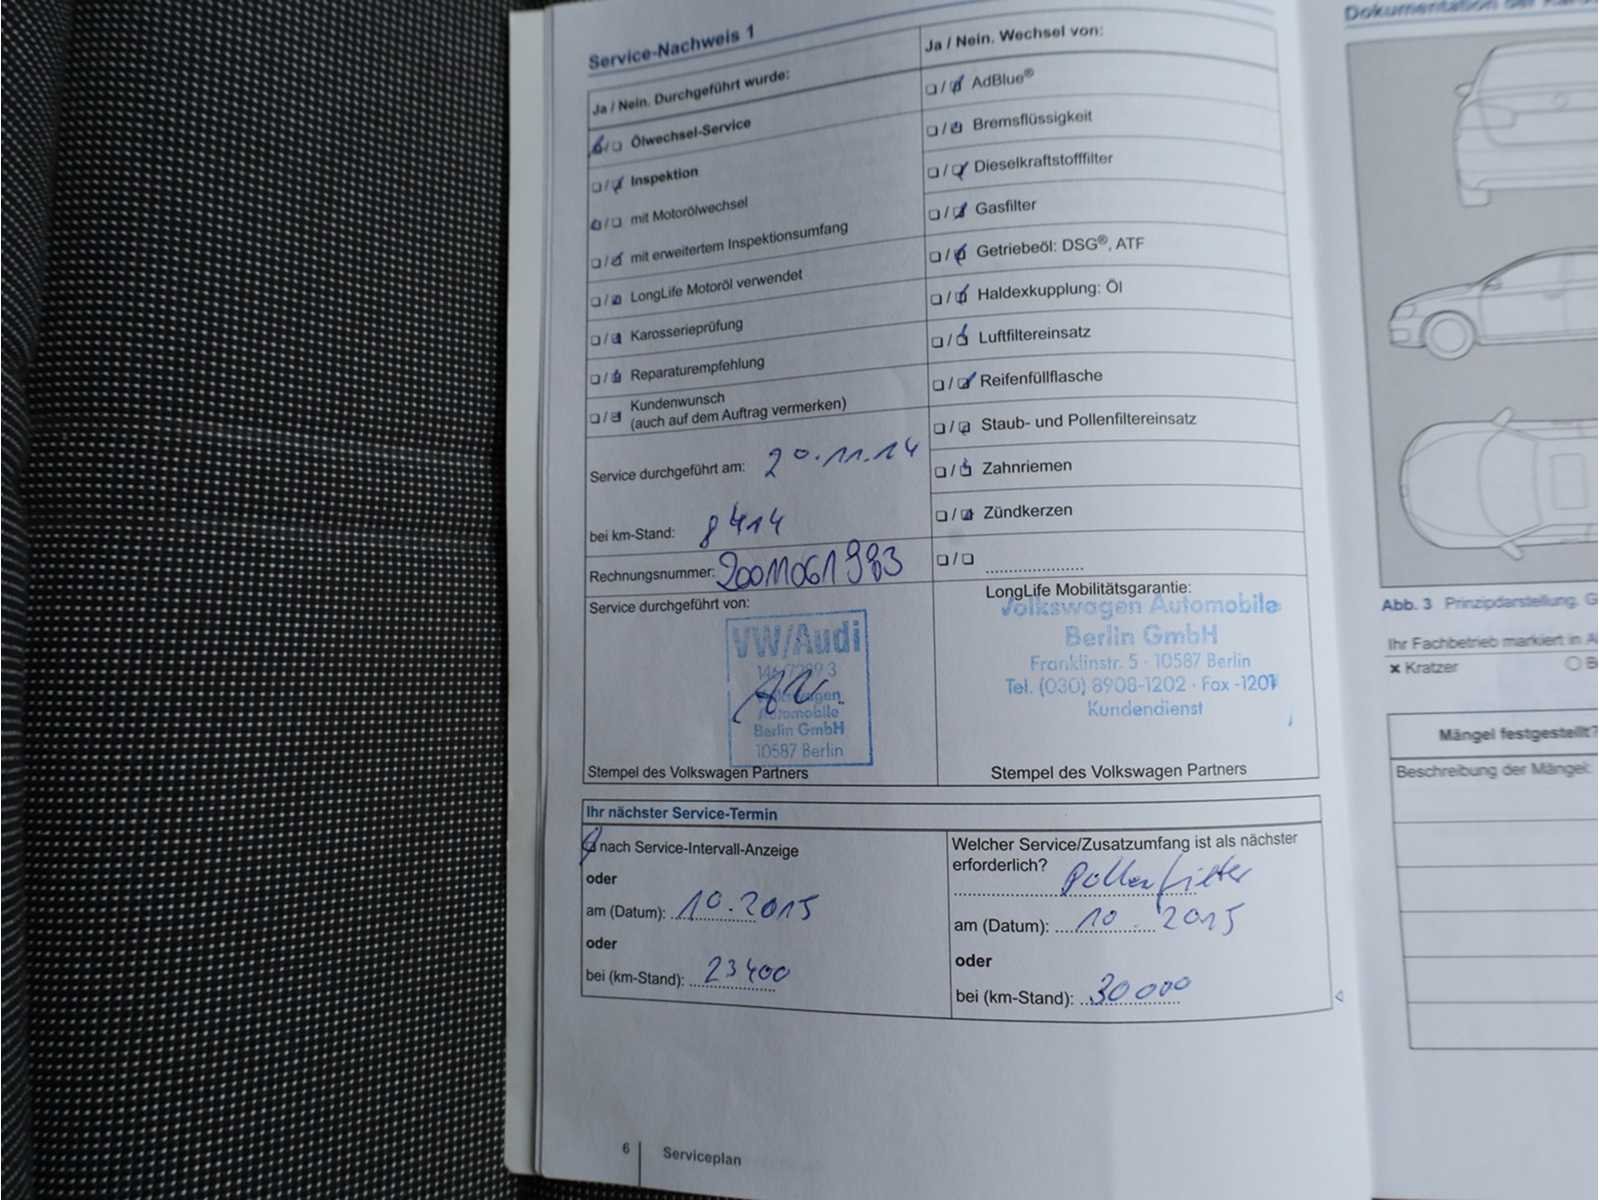 Service-Nachweis 1
Ja / Nein. Durchgeführt wurde:
Ölwechsel-Service
Inspektion
mit Motorölwechsel
mit erweitertem Inspektionsumfang
LongLife Motoröl verwendet
Karosserieprüfung
Reparaturempfehlung
Kundenwunsch
(auch auf dem Auftrag vermerken)
Service durchgeführt am: 20.11.14
bei km-Stand: 8414
Rechnungsnummer: 20011061983
Service durchgeführt von:
VW/Audi
Volkswagen
Automobile
Berlin GmbH
10587 Berlin
Stempel des Volkswagen Partners
Ja / Nein. Wechsel von:
AdBlue®
Bremsflüssigkeit
Dieselkraftstofffilter
Gasfilter
Getriebeöl: DSG®, ATF
Haldexkupplung: Öl
Luftfiltereinsatz
Reifenfüllflasche
Staub- und Pollenfiltereinsatz
Zahnriemen
Zündkerzen
LongLife Mobilitätsgarantie:
Volkswagen Automobile
Berlin GmbH
Franklinstr. 5 · 10587 Berlin
Tel. (030) 8908-1202 · Fax -1201
Kundendienst
Stempel des Volkswagen Partners
Ihr nächster Service-Termin
nach Service-Intervall-Anzeige
oder
am (Datum): 10.2015
oder
bei (km-Stand): 23400
Welcher Service/Zusatzumfang ist als nächster
erforderlich?
Pollenfilter
am (Datum): 10.2015
oder
bei (km-Stand): 30000
6 Serviceplan
Dokumentation der
Abb. 3 Prinzipdarstellung.
Ihr Fachbetrieb markiert in
Kratzer
Mängel festgestellt?
Beschreibung der Mängel: